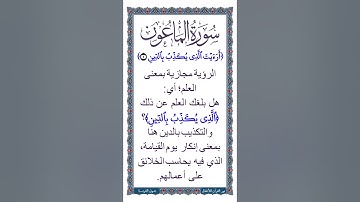 سُورَةُ الْمَاعُونِ
﴿أَرَءَيْتَ ٱلَّذِى يُكَذِّبُ بِٱلدِّينِ ۝١﴾
الرؤية مجازية بمعنى
العلم؛ أي:
هل بلغك العلم عن ذلك
﴿ٱلَّذِى يُكَذِّبُ بِٱلدِّينِ﴾؟
والتكذيب بالدين هنا
بمعنى إنكار يوم القيامة،
الذي فيه يحاسب الخلائق
على أعمالهم.